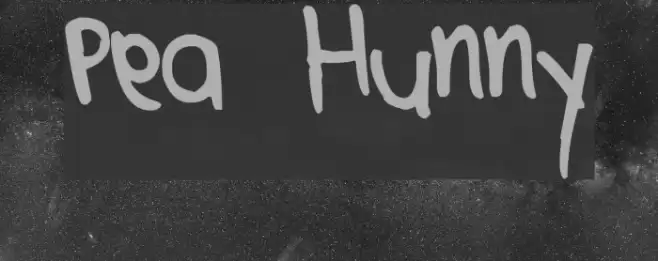 Pea Hunny